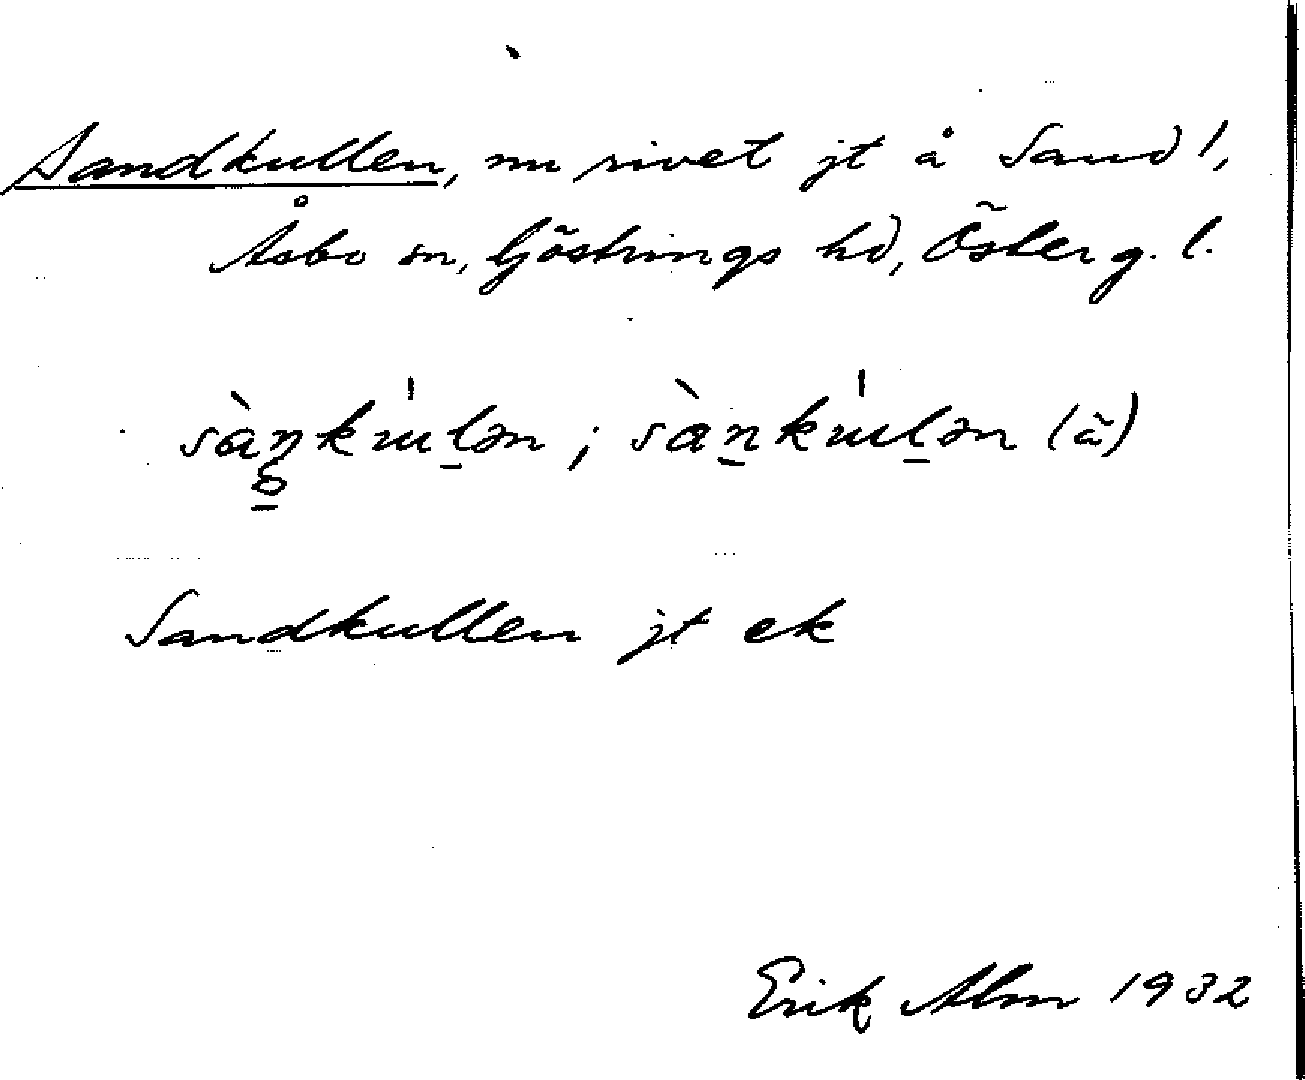 Sandkullen, nu rivet jt å Sand 1,
Åsbo sn, Göstrings hd, Österg. l.
sàn̥kɯlən ; sànkɯlən (ã)
Sandkullen jt ek
Erik Alm 1932